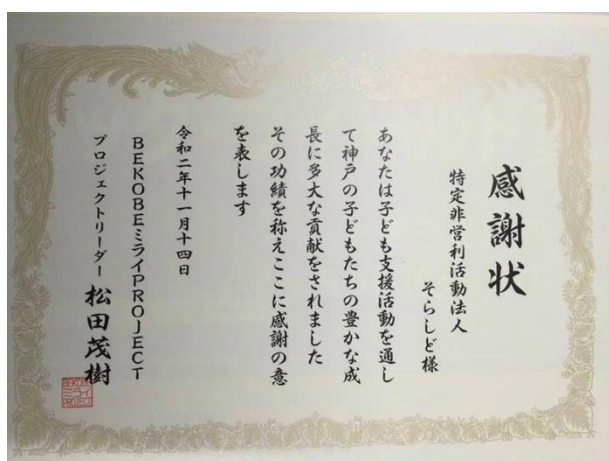 感謝状
特定非営利活動法人
そらしど様
あなたは子ども支援活動を通し
て神戸の子どもたちの豊かな成
長に多大な貢献をされました
その功績を称えここに感謝の意
を表します
令和二年十一月十四日
BEKOBEミライPROJECT
プロジェクトリーダー 松田茂樹
BEKOBE
ミライ
PROJECT